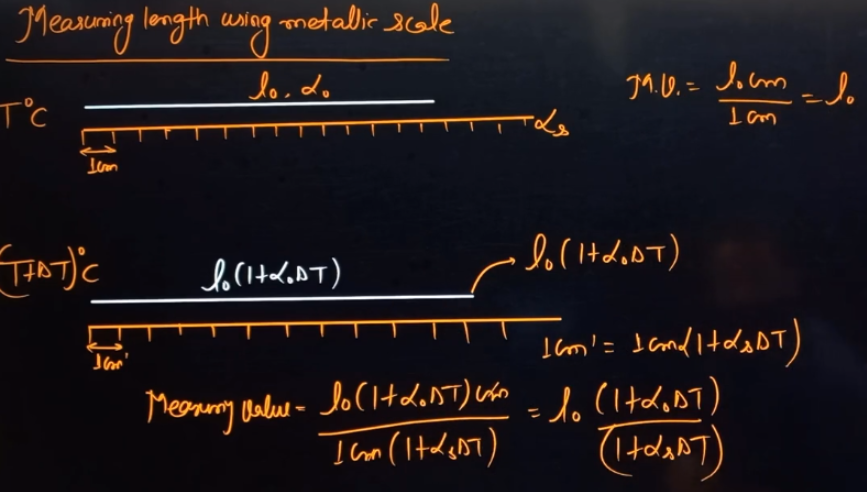 Measuring length using metallic scale
l₀, α₀
T°C
αₛ
1cm
M.V. = l₀cm / 1cm = l₀
(T+ΔT)°C
l₀(1+α₀ΔT)
l₀(1+α₀ΔT)
1cm'
1cm' = 1cm(1+αₛΔT)
Measuring value = l₀(1+α₀ΔT)cm / 1cm(1+αₛΔT) = l₀ (1+α₀ΔT) / (1+αₛΔT)